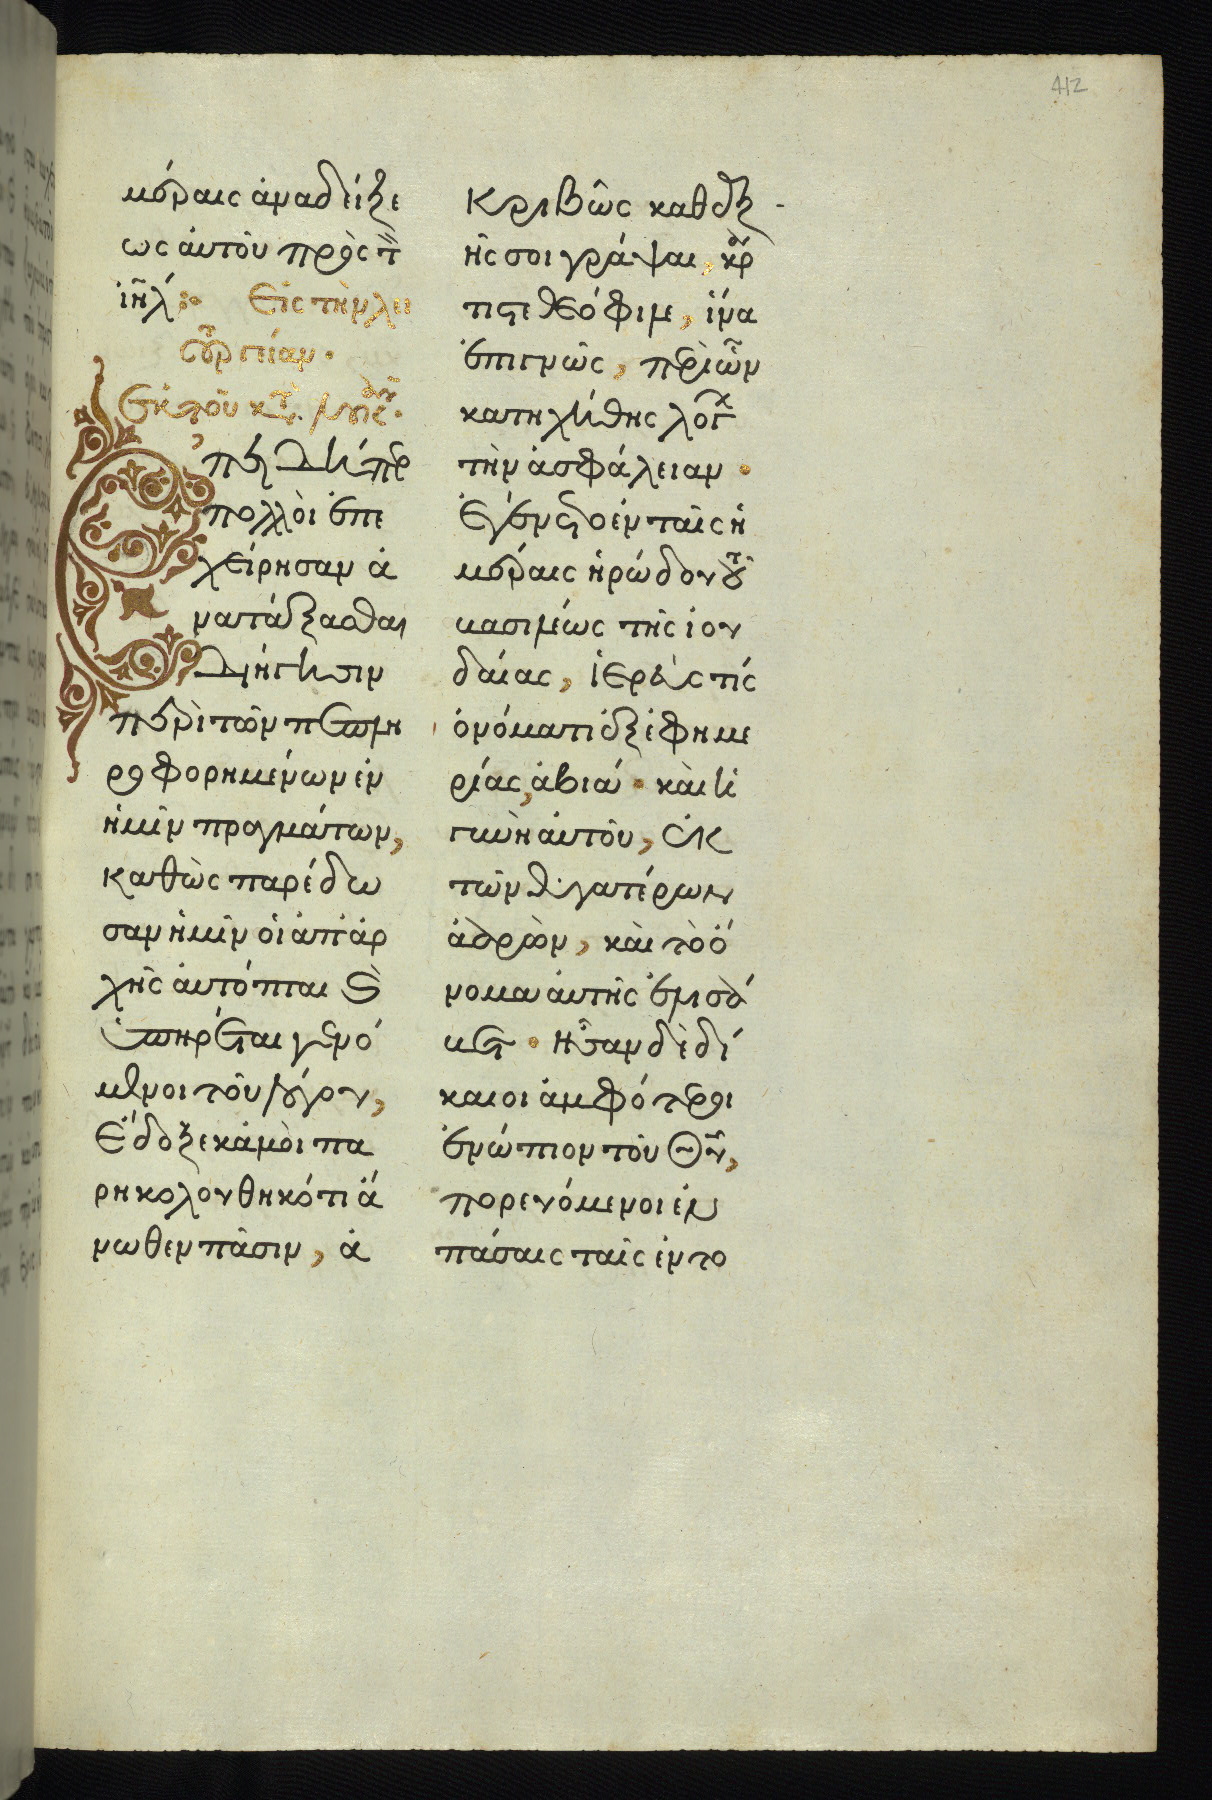 412
μέραις ἀναδείξε
ως αὐτοῦ πρὸς τ
ιῆλ: Εἰς τὴν λει
τουργίαν.
Ἐκ τοῦ κτ
Ἐπειδήπερ
πολλοὶ ἐπε
χείρησαν ἀ
νατάξασθαι
διήγησιν
περὶ τῶν πεπλη
ροφορημένων ἐν
ἡμῖν πραγμάτων,
καθὼς παρέδω
σαν ἡμῖν οἱ ἀπ' ἀρ
χῆς αὐτόπται ϗ
ὑπηρέται γενό
μενοι τοῦ λόγου,
Ἔδοξε κἀμοὶ πα
ρηκολουθηκότι ἄ
νωθεν πᾶσιν, ἀ
κριβῶς καθεξ-
ῆς σοι γράψαι, κρ
τιστε Θεόφιλε, ἵνα
ἐπιγνῷς, περὶ ὧν
κατηχήθης λόγ
τὴν ἀσφάλειαν.
Ἐγένετο ἐν ταῖς ἡ
μέραις ἡρώδου τοῦ
βασιλέως τῆς ἰου
δαίας, ἱερεύς τις
ὀνόματι ἐξ ἐφημε
ρίας, ἀβιά. καὶ ἡ
γυνὴ αὐτοῦ, ἐκ
τῶν θυγατέρων
ἀαρών, καὶ τὸ ὄ
νομα αὐτῆς ἐλισά
βετ. ἦσαν δὲ δί
καιοι ἀμφότεροι
ἐνώπιον τοῦ Θυ,
πορευόμενοι ἐν
πάσαις ταῖς ἐντο